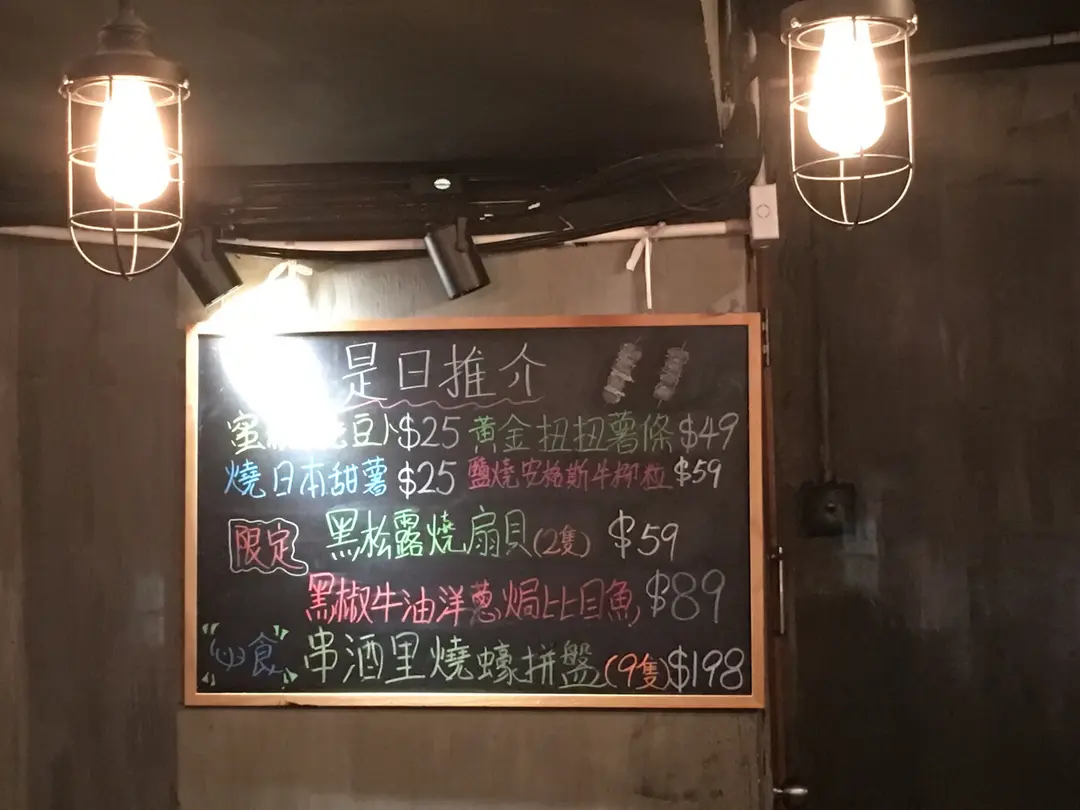 是日推介
蜜 豆卜$25 黃金扭扭薯條$49
燒日本甜薯 $25 鹽燒安格斯牛柳粒 $59
限定 黑松露燒扇貝(2隻) $59
黑椒牛油洋蔥焗比目魚 $89
必食 串酒里燒蠔拼盤(9隻)$198